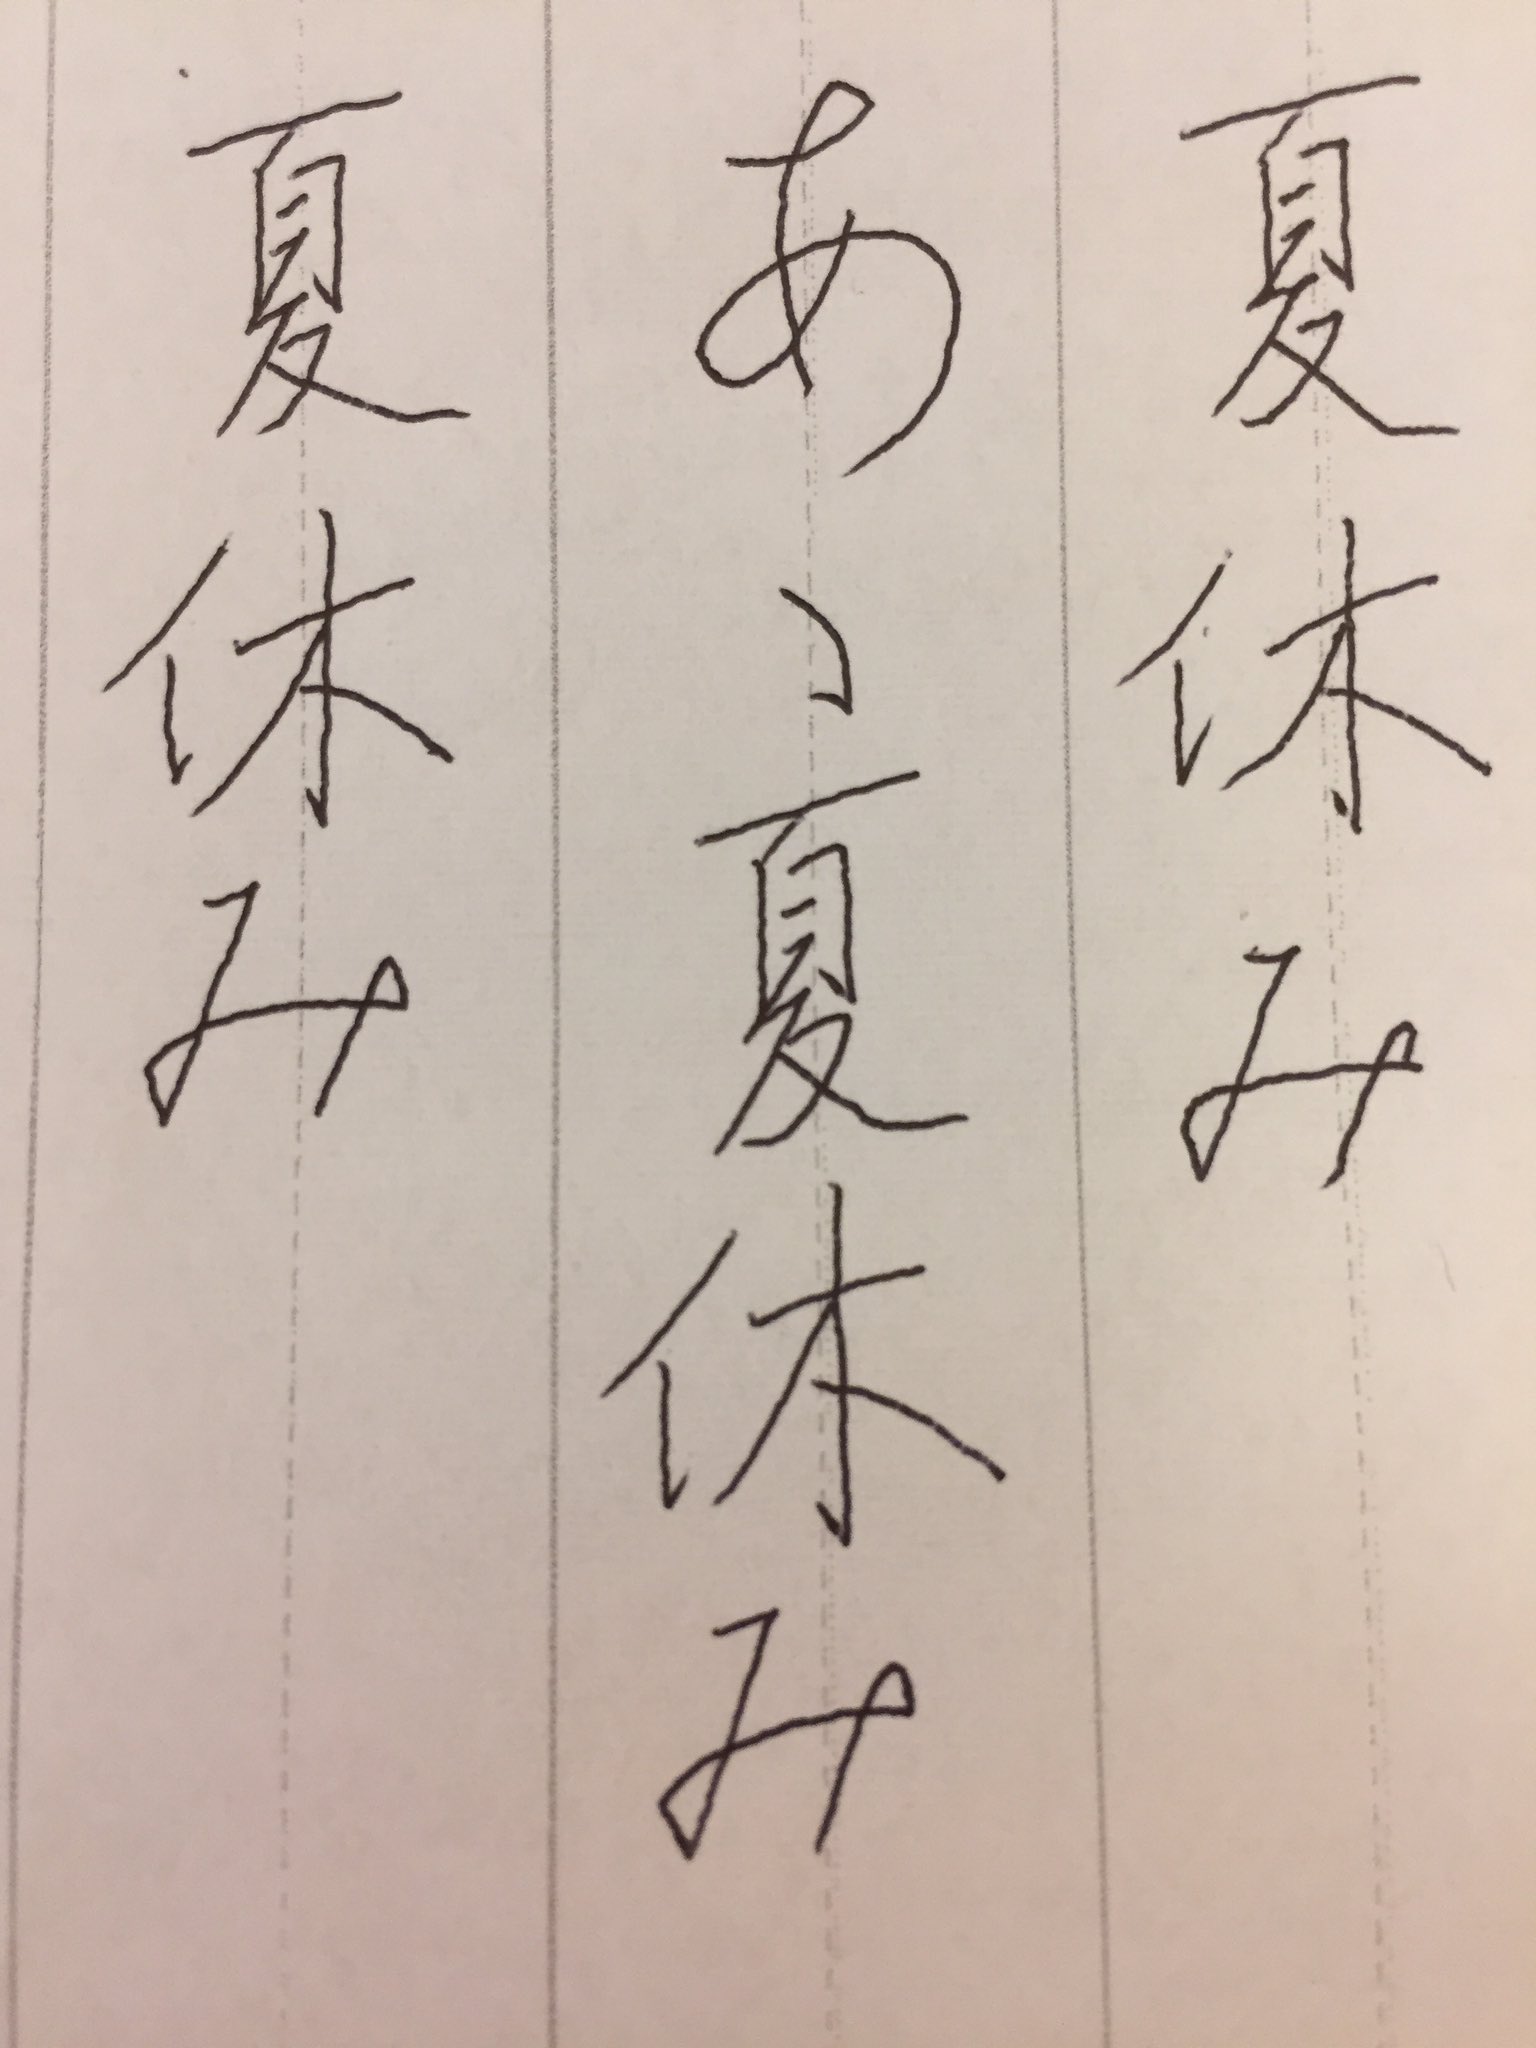 夏休み
あゝ夏休み
夏休み